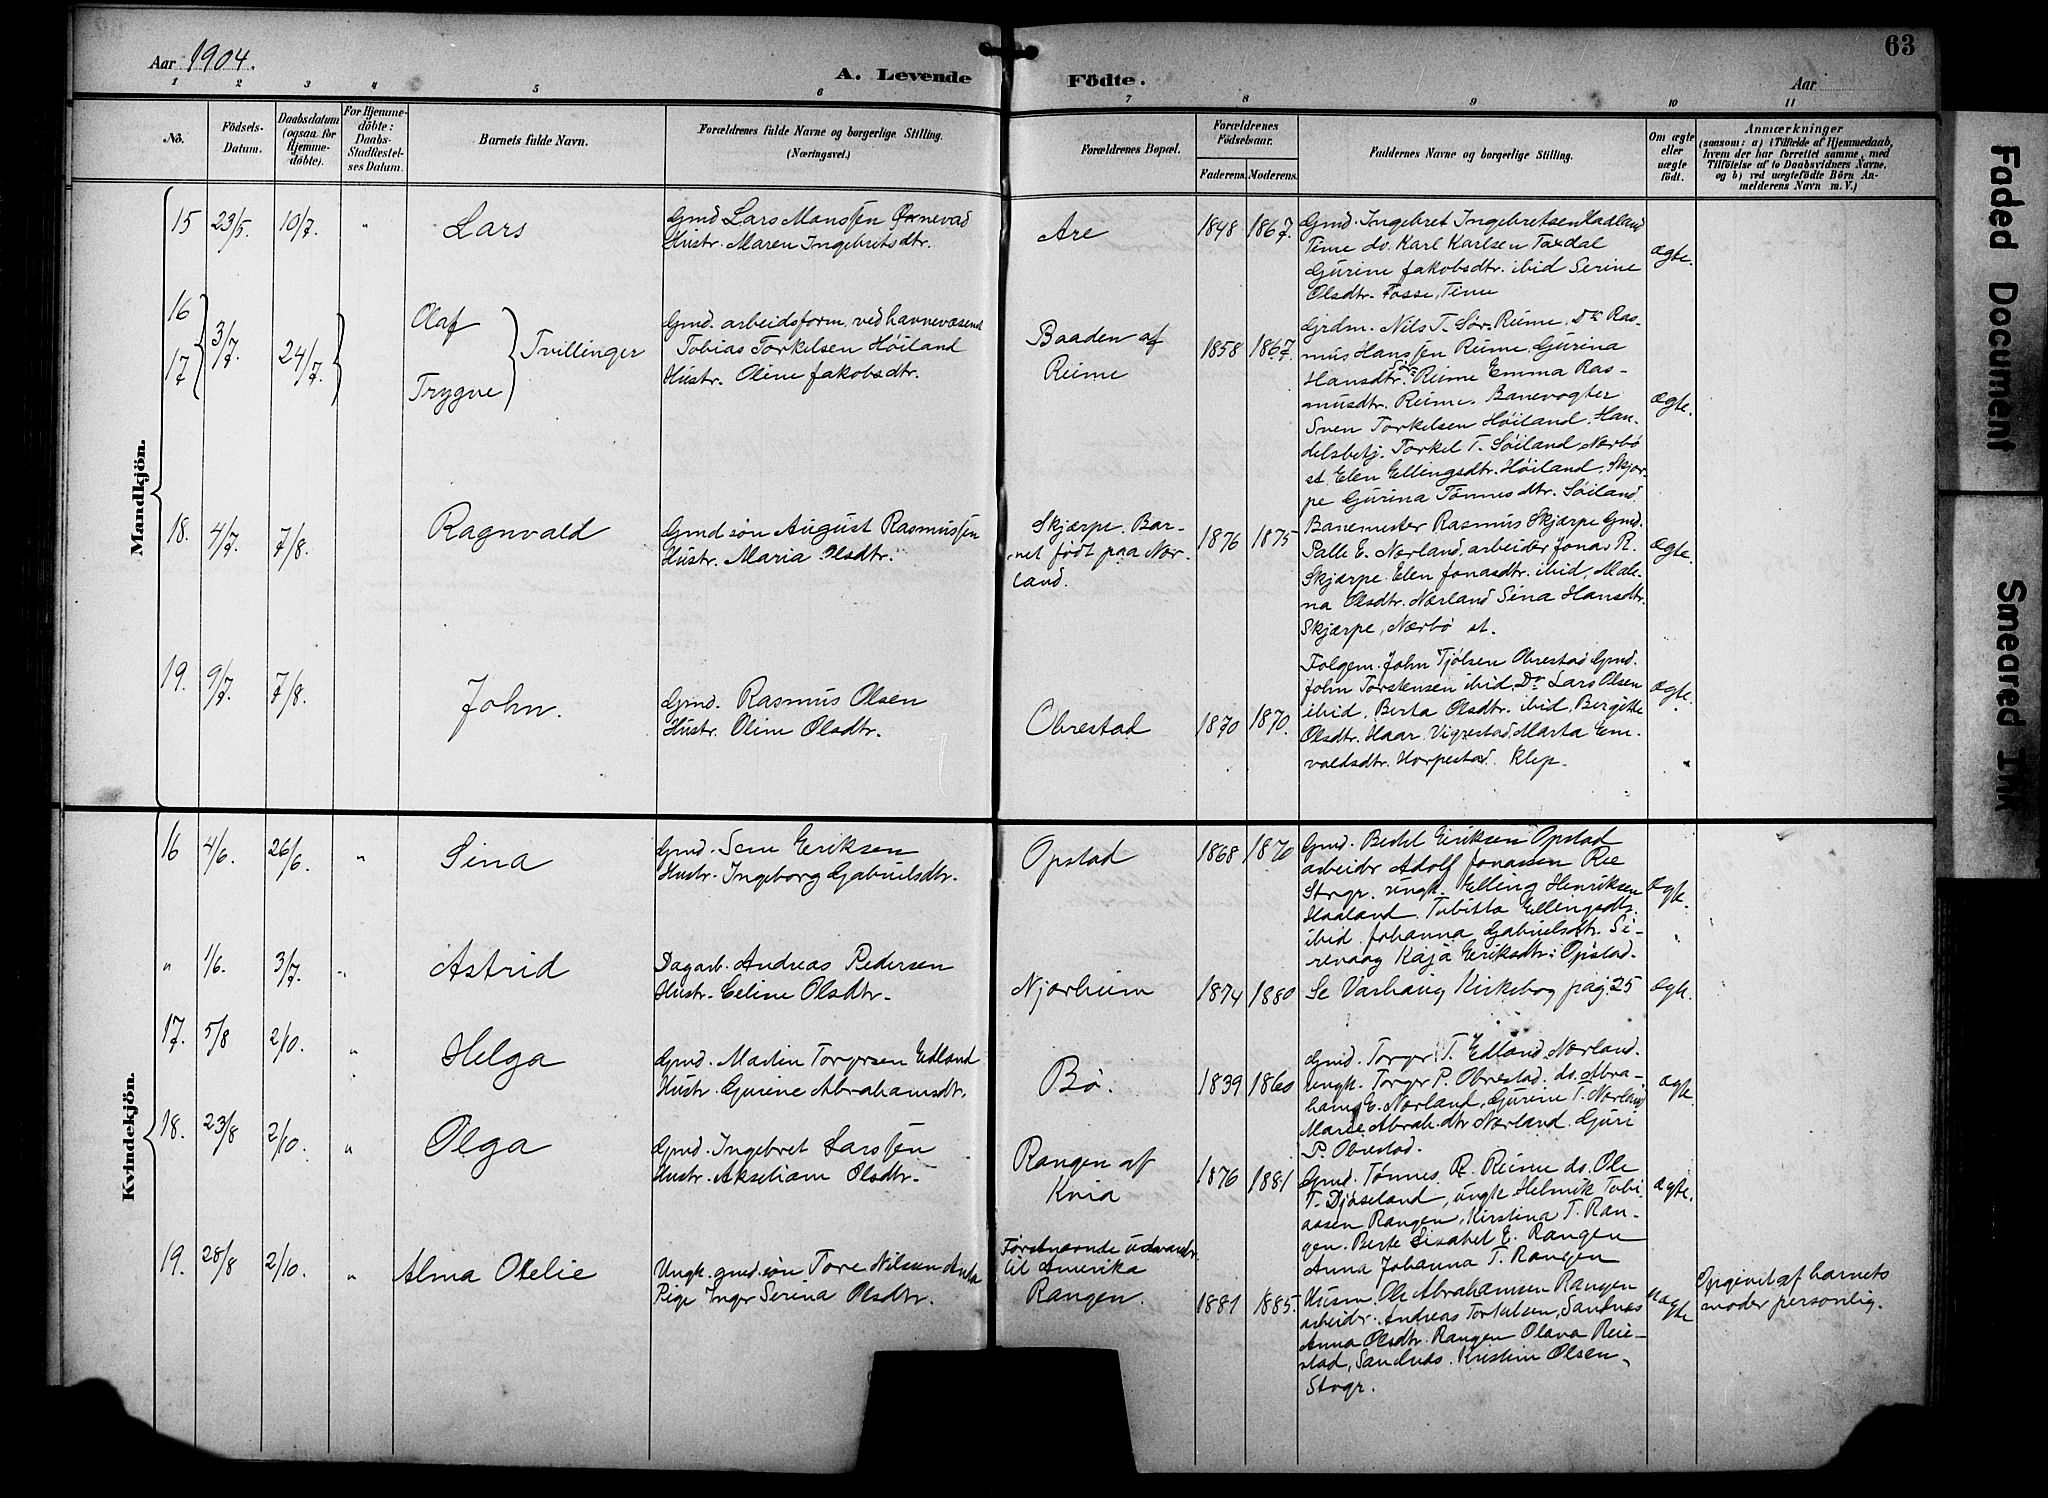 Aar 1904.
A. Levende Födte.
Aar
63
1 2 3 4 5 6 7 8 9 10 11
No.
Födsels-Datum.
Daabsdatum (ogsaa for Hjemme-döbte).
For Hjemme-döbte: Daabs-Stadfæstel-ses Datum.
Barnets fulde Navn.
Forældrenes fulde Navne og borgerlige Stilling.
(Næringsvei.)
Forældrenes Bopæl.
Forældrenes Födselsaar.
Faderens. Moderens.
Faddernes Navne og borgerlige Stilling.
Om ægte eller uægte födt.
Anmærkninger
(saasom: a) i Tilfælde af Hjemmedaab, hvem der har forrettet samme, med Tilföielse af to Daabsvidners Navne, og b) ved uægtefödte Börn An-melderens Navn m. V.)
Mandkjön.
15 23/5. 10/7. " Lars
Gmd Lars Monssen Ørnevad
Hustr. Maren Ingebritsdtr.
Are
1848 1867.
Gmd. Ingebret Ingebretsen Hadland
Time do. Karl Karlsen Taxdal
Gurine Jakobsdtr. ibid Serine
Olsdtr. Fosse, Time
ægte.
16
17
3/7. 24/7.
Olaf
Trygve
Tvillinger
Gmd. arbeidsform. ved havnevæsenet
Tobias Torkelsen Høiland
Hustr. Oline Jakobsdtr.
Baaden af
Reime
1858 1867.
Grdm. Nils T. Sør-Reime. Do Ras-
mus Hanssen Reime. Gurina
Hansdtr. Sør Reime Emma Ras-
musdtr. Reime. Banevogter
Sven Torkelsen Høiland. Han-
delsbetj. Torkel T. Søiland, Nærbø
st. Elen Ellingsdtr. Høiland, Skjær-
pe Gurina Tønnesdtr. Søiland.
ægte.
18. 4/7. 7/8. Ragnvald
Gmd søn August Rasmussen
Hustr. Maria Olsdtr.
Skjærpe. Bar-
net født paa Nær-
land.
1876 1875
Banemester Rasmus Skjærpe Gmd.
Palle E. Nærland. arbeider Jonas R.
Skjærpe. Elen Jonasdtr. ibid, Male-
na Olsdtr. Nærland Sina Hansdtr.
Skjærpe, Nærbø st.
ægte.
19. 9/7. 7/8. John.
Gmd. Rasmus Olsen
Hustr. Oline Olsdtr.
Obrestad
1870 1870.
Folgem. John Tjølsen Obrestad Gmd.
John Torstensen ibid, Do Lars Olsen
ibid. Berta Olsdtr. ibid, Bergitte
Olsdtr. Haar. Vigrestad, Marta Em-
valdsdtr. Horpestad. Klep.
ægte.
Kvindekjön.
16 4/6. 26/6. " Sina
Gmd. Sem Eriksen
Hustr. Ingeborg Gabrielsdtr.
Opstad
1868 1870
Gmd. Bertel Eriksen Opstad
arbeider Adolf Jonassen Ree
Stvgr. ungk. Elling Henriksen
Haaland. Tobitta Ellingsdtr.
ibid. Johanna Gabrielsdtr. Si-
revaag Kaja Eriksdtr. Opstad.
ægte.
" 1/6. 3/7. " Astrid
Dagarb. Andreas Pedersen
Hustr. Celine Olsdtr.
Njærheim
1874 1880
Se Varhaug Kirkebog pag. 25
ægte.
17. 5/8 2/10. " Helga
Gmd. Martin Torgersen Edland
Hustr. Gurine Abrahamsdtr.
Bø.
1839 1860
Gmd. Torger T. Edland, Nærland.
Ungk. Torger P. Obrestad. do. Abra-
ham E. Nærland, Gurine T. Nærland
Marie Abrah.dtr Nærland. Guri
P. Obrestad.
ægte.
18. 23/8 2/10. " Olga
Gmd. Ingebret Larssen
Hustr. Akseliane Olsdtr.
Rangen af
Kvia
1876 1881
Gmd. Tønnes R. Reime do. Ole
T. Djøseland, ungk Helmik Tobi-
assen Rangen, Kirstina T. Ran-
gen. Berte Lisabet E. Rangen
Anna Johanna T. Rangen
ægte.
19. 28/8 2/10. " Alma Otelie
Ungk. gmd. søn Tore Nilssen
Pige Inger Serina Olsdtr.
Førstnævnte udvandr.
til Amerika
Rangen.
1881 1885.
Husm. Ole Abrahamsen Rangen
arbeidr. Andreas Torkelsen, Sandnæs
Anna Olsdtr. Rangen Olava Reie-
stad, Sandnæs. Kristine Olsen,
Stvgr.
Uægte
Opgivet af barnets
moder personlig.
Faded Document
Smeared Ink